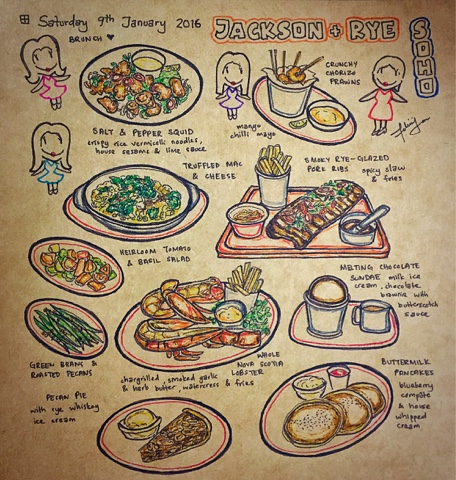 Saturday 9th January 2016
JACKSON + RYE
SOHO
BRUNCH
SALT & PEPPER SQUID
crispy rice vermicelli noodles,
house sesame & lime sauce
CRUNCHY
CHORIZO
PRAWNS
mango
chilli mayo
TRUFFLED MAC
& CHEESE
SMOKY RYE-GLAZED
PORK RIBS
spicy slaw
& fries
HEIRLOOM TOMATO
& BASIL SALAD
GREEN BEANS &
ROASTED PECANS
WHOLE
NOVA SCOTIA
LOBSTER
chargrilled, smoked garlic
& herb butter, watercress & fries
MELTING CHOCOLATE
SUNDAE milk ice
cream, chocolate
brownie with
butterscotch
sauce
PECAN PIE
with rye whiskey
ice cream
BUTTERMILK
PANCAKES
blueberry
compote
& house
whipped
cream